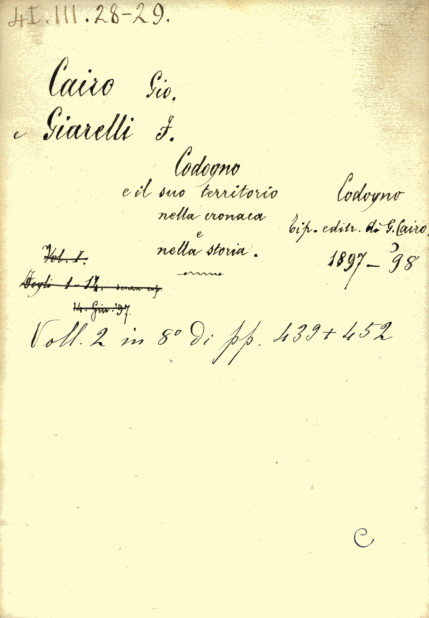 4I.III.28-29.
Cairo Gio.
e Giarelli F.
Codogno
e il suo territorio
nella cronaca
e
nella storia.
Codogno
Tip. editr. di G. Cairo
1897-98
Vol. I.
Fogli 1-12.
14. Giu. 97
Voll. 2 in 8° di pp. 439+452
C